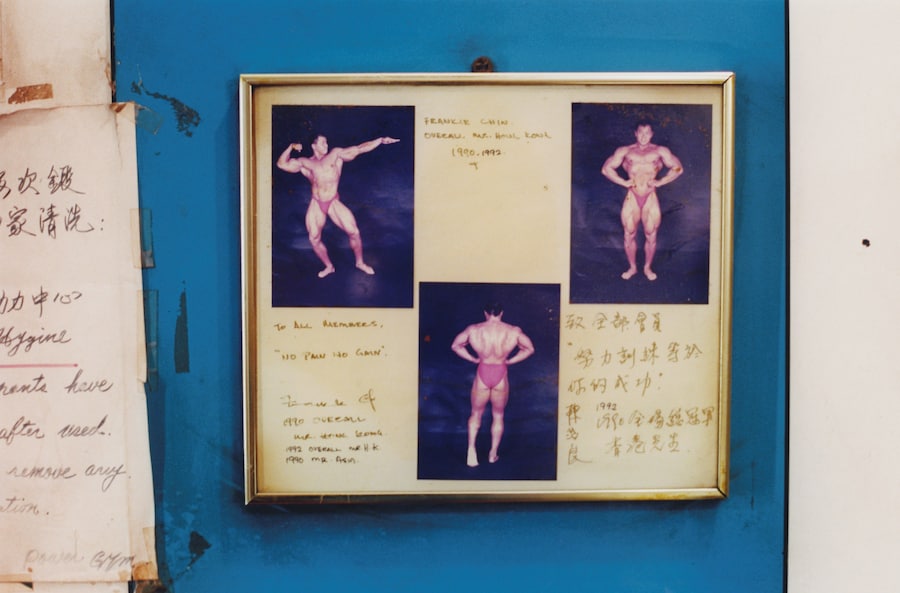 次鍛
家清洗:
力中心
Hygine
have
after used.
remove any
Power Gym
FRANKIE CHIN.
OVERALL. MR. HONG KONG
1990.1992.
TO ALL MEMBERS.
"NO PAIN NO GAIN".
1990 OVERALL
MR. HONG KONG.
1992 OVERALL MR H.K.
1990 MR. ASIA.
致全部會員
"努力訓練等於
你的成功"
1992
1990全場總冠軍
香港先生.